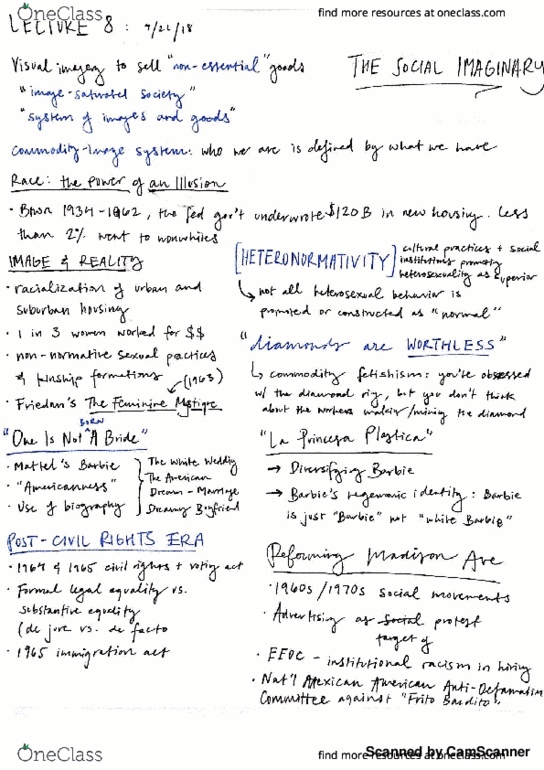 OneClass
find more resources at oneclass.com
LECTURE 8 : 9/21/18
THE SOCIAL IMAGINARY
Visual imagery to sell "non-essential" goods
"image-saturated society"
"system of images and goods"
commodity-image system: who we are is defined by what we have
Race: the power of an Illusion
• Btwn 1934-1962, the fed gov't underwrote $120B in new housing. less
than 2% went to nonwhites
IMAGE & REALITY
• racialization of urban and
suburban housing
• 1 in 3 women worked for $$
• non-normative sexual practices
& kinship formations
(1963)
• Friedan's The Feminine Mystique
"One Is Not BORN A Bride"
• Mattel's Barbie
• "Americanness"
• Use of biography
The White Wedding
The American
Dream - Marriage
Dreamy Boyfriend
POST-CIVIL RIGHTS ERA
• 1964 & 1965 civil rights + voting act
• Formal legal equality vs.
substantive equality
(de jure vs. de facto
• 1965 immigration act
[HETERONORMATIVITY] cultural practices + social
institutions promoting
heterosexuality as superior
↳ not all heterosexual behavior is
promoted or constructed as "normal"
"diamonds are WORTHLESS"
↳ commodity fetishism: you're obsessed
w/ the diamond ring, but you don't think
about the workers makin/mining the diamond
"La Princesa Plastica"
→ Diversifying Barbie
→ Barbie's hegemonic identity: Barbie
is just "Barbie" not "white Barbie"
Reforming Madison Ave
• 1960s/1970s social movements
• Advertising as social protest
target of
• EEOC - institutional racism in hiring
• Nat'l Mexican American Anti-Defamation
Committee against "Frito Bandito".
OneClass
find more resources at oneclass.com
Scanned by CamScanner